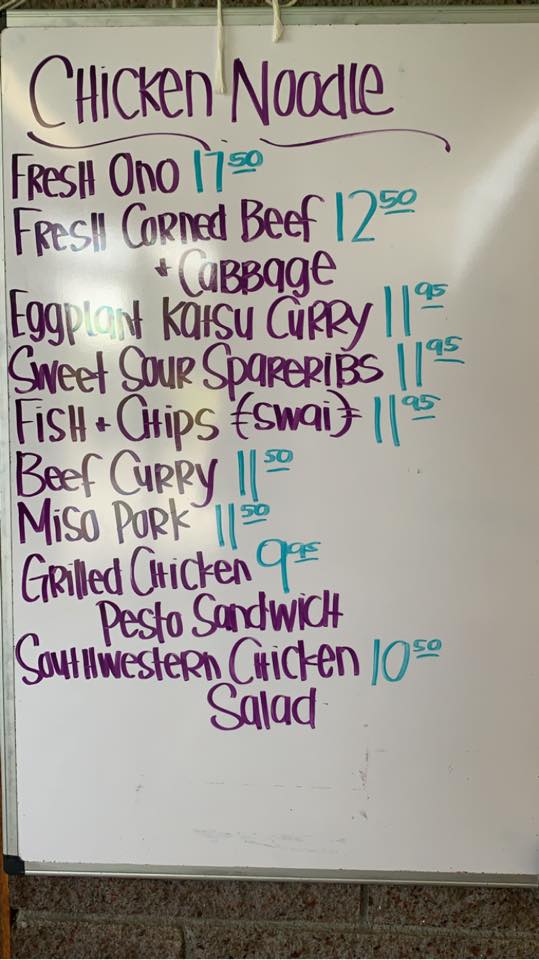 Chicken Noodle
Fresh Ono 17 50
Fresh Corned Beef 12 50
+ Cabbage
Eggplant Katsu Curry 11 95
Sweet Sour Spareribs 11 95
Fish + Chips (swai) 11 95
Beef Curry 11 50
Miso Pork 11 50
Grilled Chicken 9 95
Pesto Sandwich
Southwestern Chicken 10 50
Salad